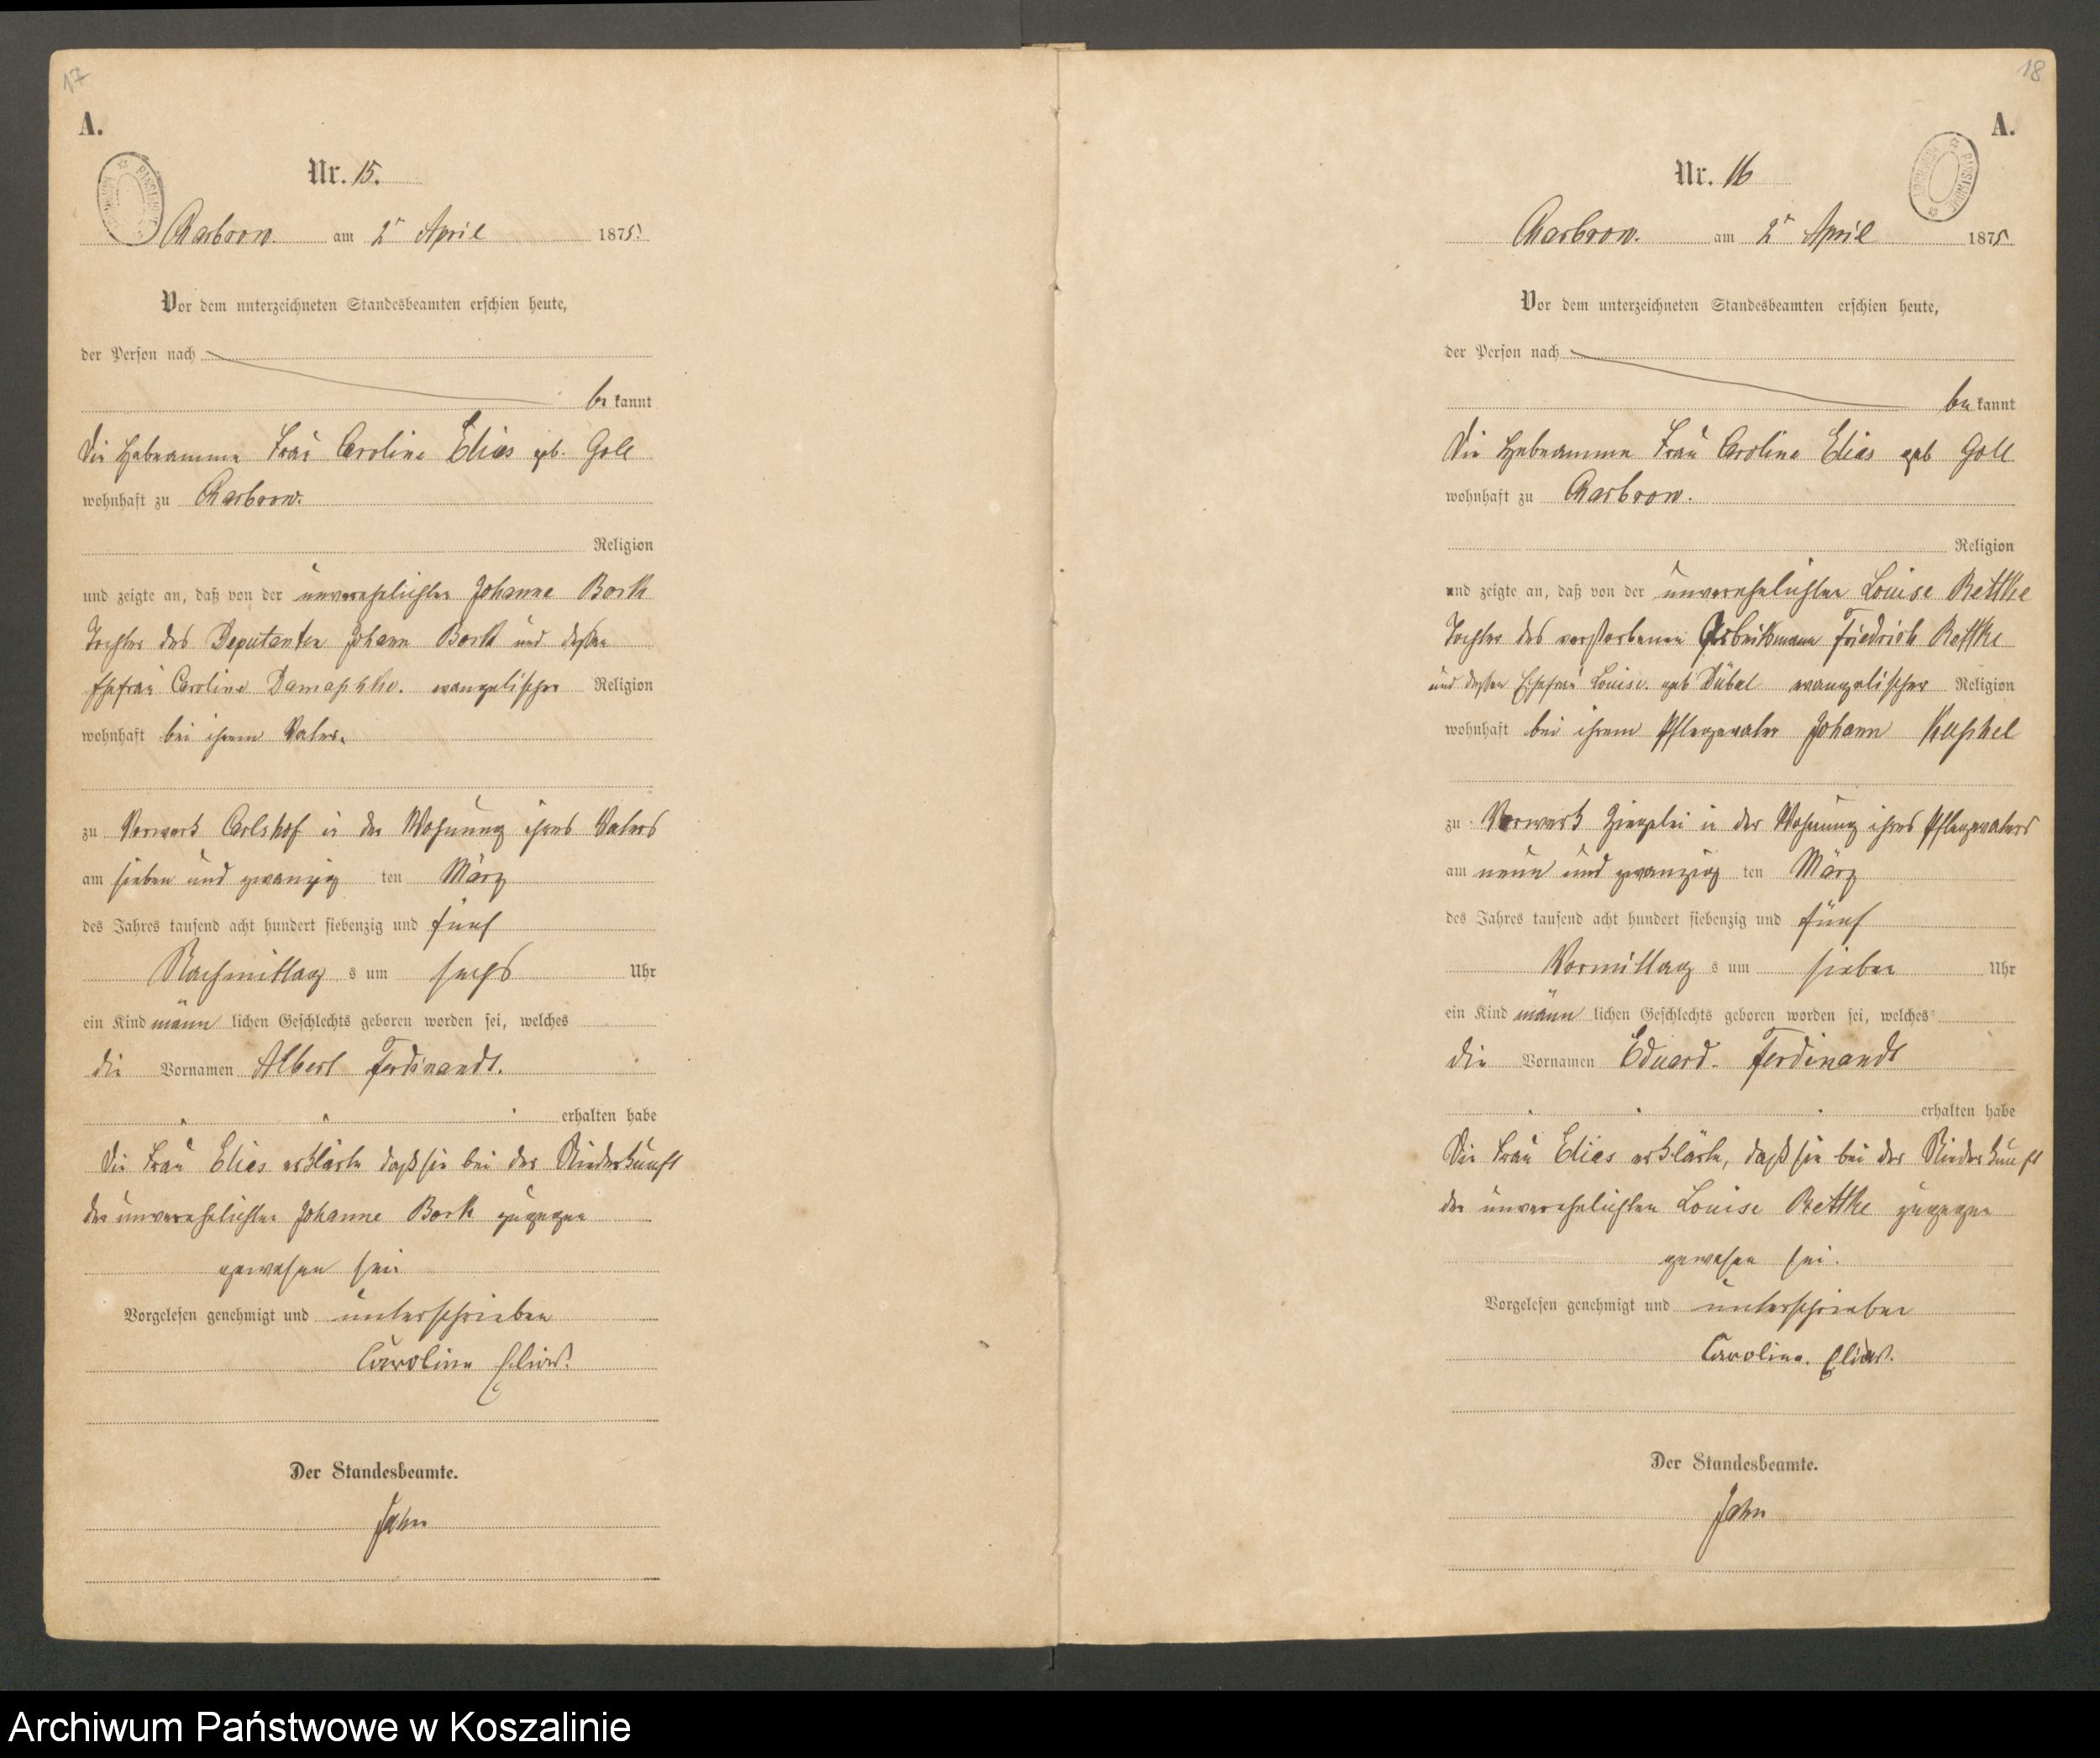 17
A.
Nr. 15.
Charbrow. am 2ᵗ April 1875.
Vor dem unterzeichneten Standesbeamten erschien heute,
der Person nach
be kannt
Die Hebeamme Frau Caroline Elias geb. Goll
wohnhaft zu Charbrow.
Religion
und zeigte an, daß von der unverehelichten Johanne Bork
Tochter des Deputanten Johann Bork und dessen
Ehefrau Caroline Damaschke. evangelischer Religion
wohnhaft bei ihrem Vater.
zu Vorwerk Carlshof in der Wohnung ihres Vaters
am sieben und zwanzig ten März
des Jahres tausend acht hundert siebenzig und fünf
Nachmittag s um sechs Uhr
ein Kind männ lichen Geschlechts geboren worden sei, welches
die Vornamen Albert Ferdinandt.
erhalten habe
Die Frau Elias erklärte daß sie bei der Niederkunft
der unverehelichten Johanne Bork zugegen
gewesen sei.
Vorgelesen genehmigt und unterschrieben
Caroline Elias.
Der Standesbeamte.
Jahn
18
A.
Nr. 16
Charbrow. am 2ᵗ April 1875
Vor dem unterzeichneten Standesbeamten erschien heute,
der Person nach
be kannt
Die Hebeamme Frau Caroline Elias geb Goll
wohnhaft zu Charbrow.
Religion
und zeigte an, daß von der unverehelichten Louise Rettke
Tochter des verstorbenen Arbeitsmann Friedrich Rettke
und dessen Ehefrau Louise. geb Dübel evangelischer Religion
wohnhaft bei ihrem Pflegevater Johann Kuschel
zu Vorwerk Ziegelei in der Wohnung ihres Pflegevaters
am neun und zwanzig ten März
des Jahres tausend acht hundert siebenzig und fünf
Vormittag s um sieben Uhr
ein Kind männ lichen Geschlechts geboren worden sei, welches
die Vornamen Eduard. Ferdinandt
erhalten habe
Die Frau Elias erklärte, daß sie bei der Niederkunft
der unverehelichten Louise Rettke zugegen
gewesen sei.
Vorgelesen genehmigt und unterschrieben
Caroline. Elias.
Der Standesbeamte.
Jahn
Archiwum Państwowe w Koszalinie